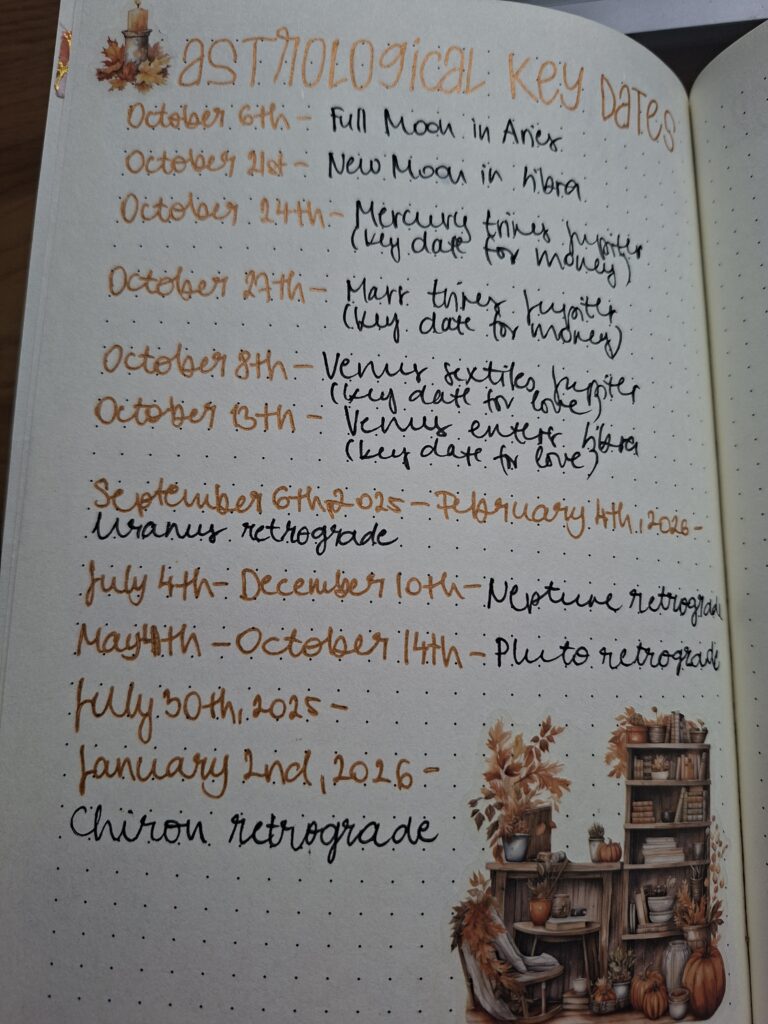 Astrological Key Dates
October 6th - Full Moon in Aries
October 21st - New Moon in Libra
October 24th - Mercury trines Jupiter
(key date for money)
October 27th - Mars trines Jupiter
(key date for money)
October 8th - Venus sextiles Jupiter
(key date for love)
October 13th - Venus enters Libra
(key date for love)
September 6th, 2025 - February 4th, 2026 -
Uranus retrograde
July 4th - December 10th - Neptune retrograde
May 4th - October 14th - Pluto retrograde
July 30th, 2025 -
January 2nd, 2026 -
Chiron retrograde